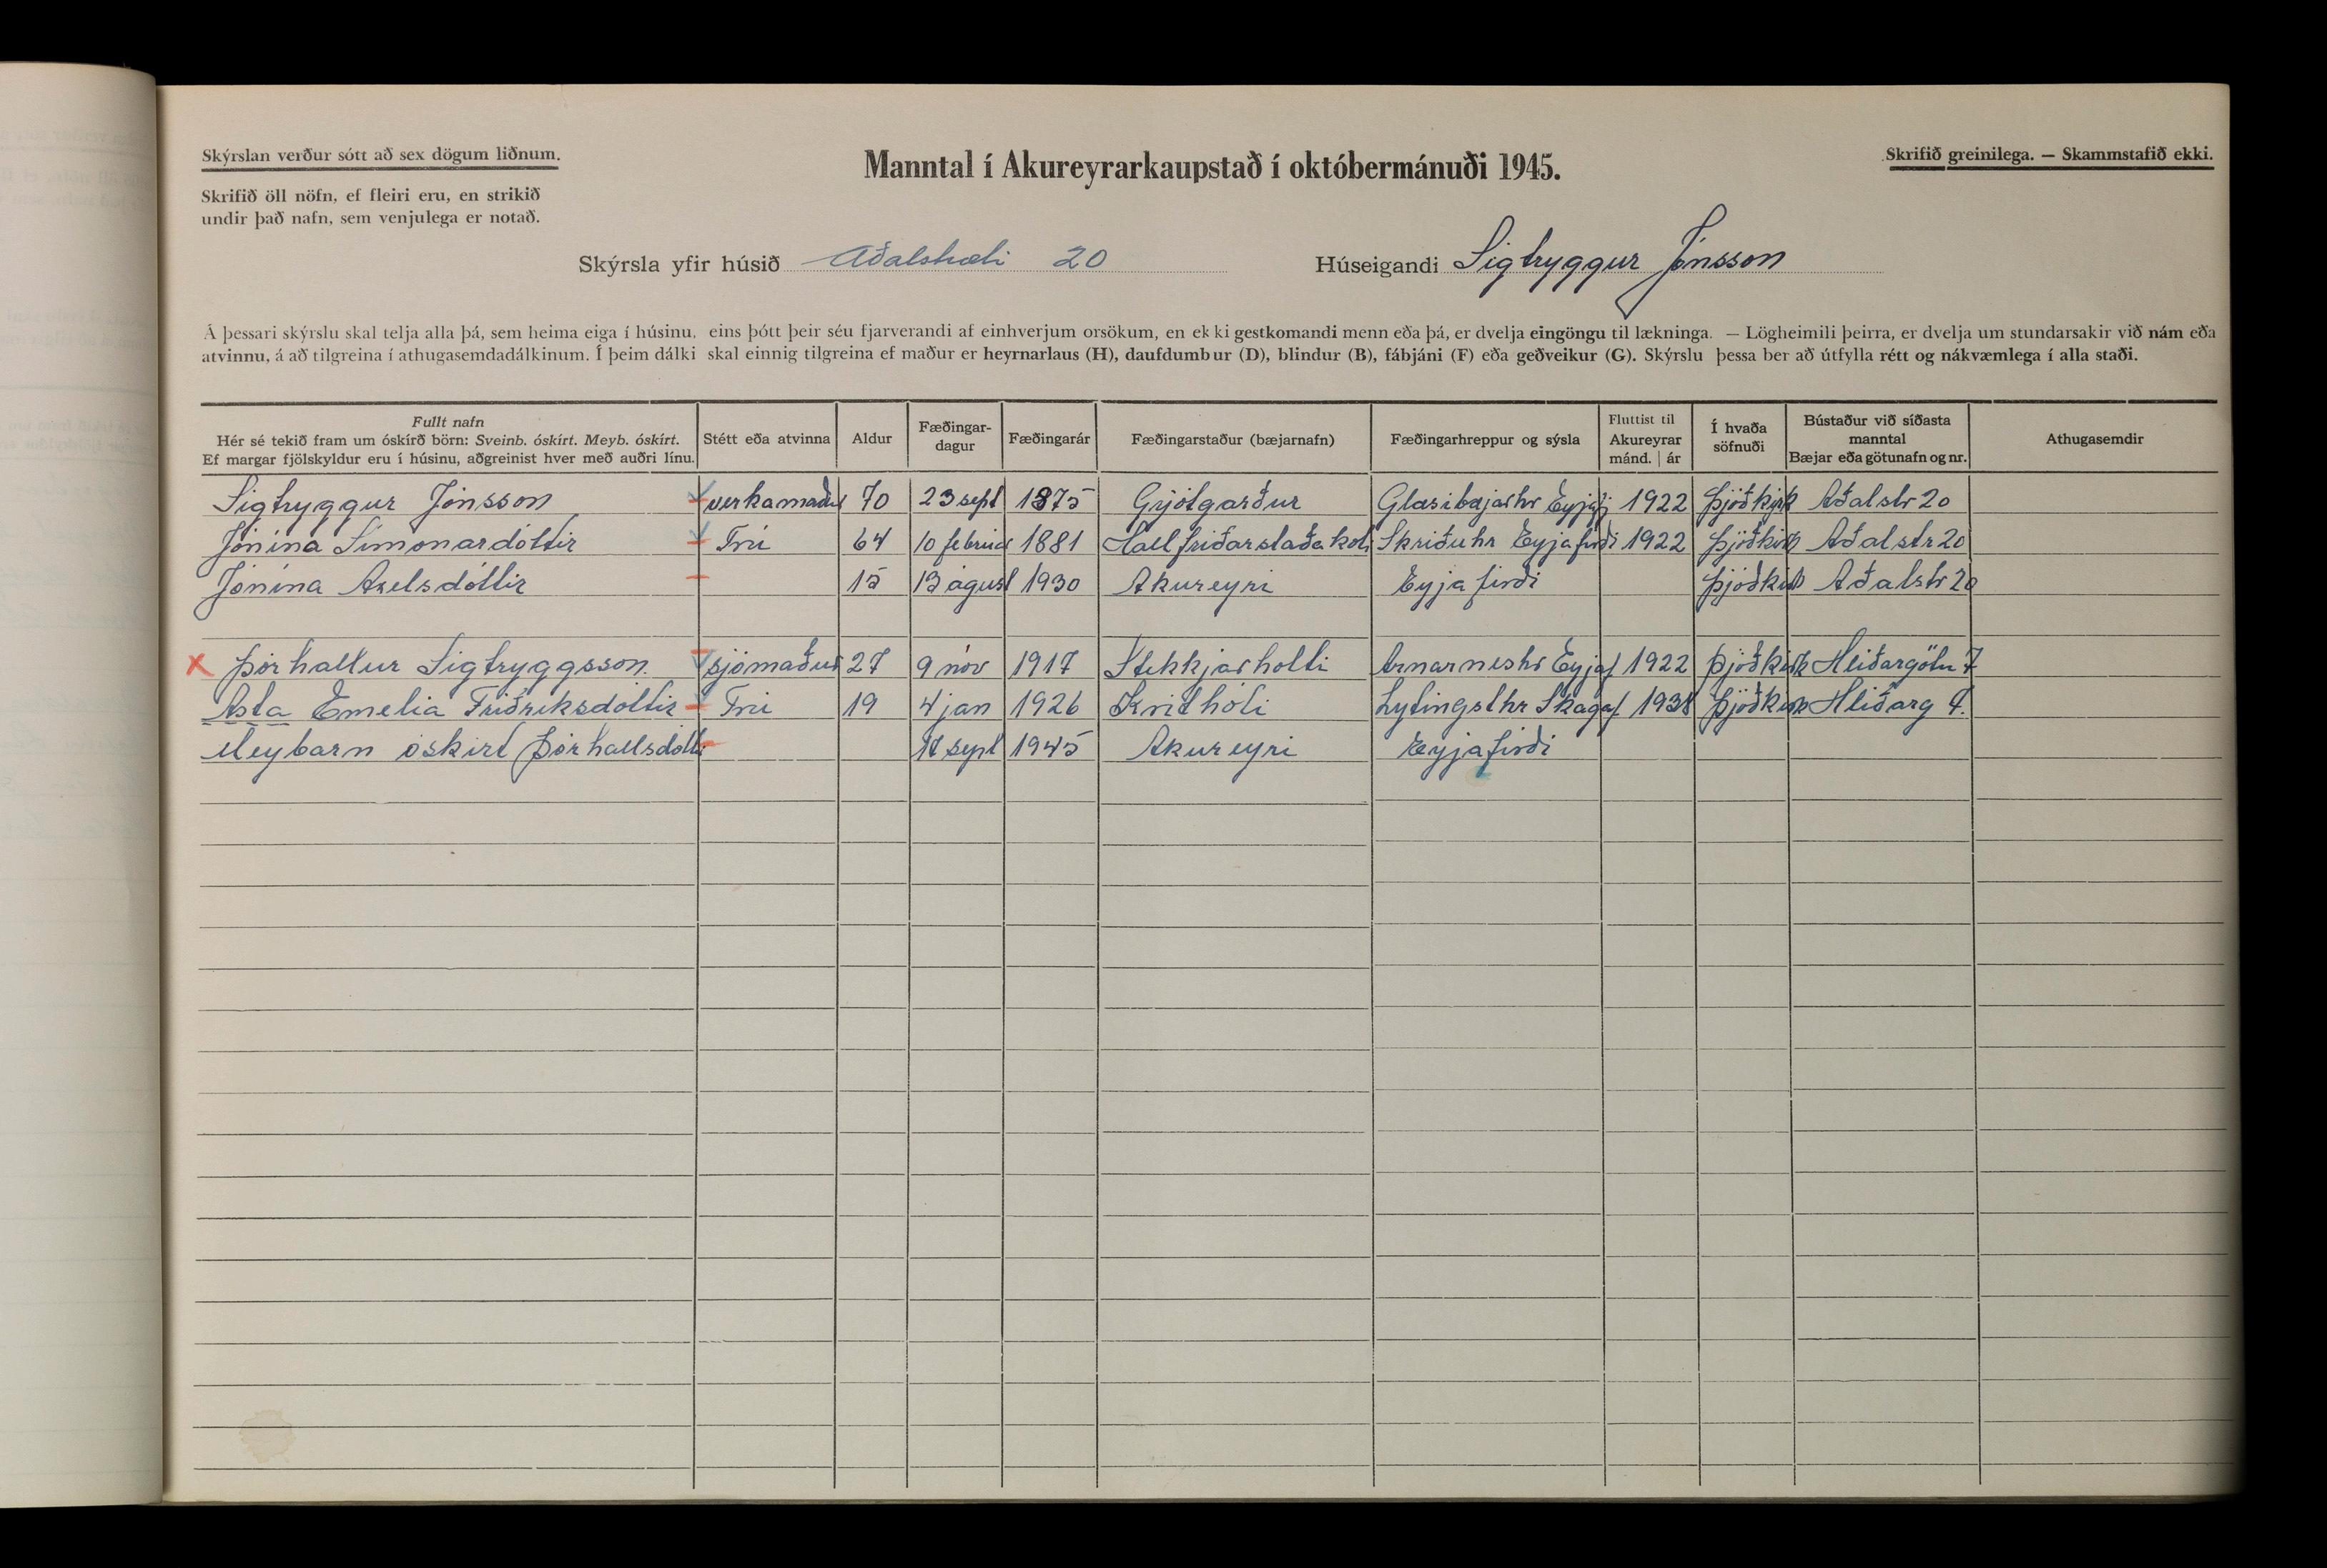 Skýrslan verður sótt að sex dögum liðnum.
Skrifið öll nöfn, ef fleiri eru, en strikið
undir það nafn, sem venjulega er notað.
Manntal í Akureyrarkaupstað í októbermánuði 1945.
Skrifið greinilega. — Skammstafið ekki.
Skýrsla yfir húsið Aðalstræti 20 Húseigandi Sigtryggur Jónsson
Á þessari skýrslu skal telja alla þá, sem heima eiga í húsinu, eins þótt þeir séu fjarverandi af einhverjum orsökum, en ekki gestkomandi menn eða þá, er dvelja eingöngu til lækninga. — Lögheimili þeirra, er dvelja um stundarsakir við nám eða
atvinnu, á að tilgreina í athugasemdadálkinum. Í þeim dálki skal einnig tilgreina ef maður er heyrnarlaus (H), daufdumbur (D), blindur (B), fábjáni (F) eða geðveikur (G). Skýrslu þessa ber að útfylla rétt og nákvæmlega í alla staði.
Fullt nafn
Hér sé tekið fram um óskírð börn: Sveinb. óskírt. Meyb. óskírt.
Ef margar fjölskyldur eru í húsinu, aðgreinist hver með auðri línu.
Stétt eða atvinna
Aldur
Fæðingar-
dagur
Fæðingarár
Fæðingarstaður (bæjarnafn)
Fæðingarhreppur og sýsla
Fluttist til
Akureyrar
mánd. | ár
Í hvaða
söfnuði
Bústaður við síðasta
manntal
Bæjar eða götunafn og nr.
Athugasemdir
Sigtryggur Jónsson verkamaður 70 23 sept 1875 Grjótgarður Glæsibæjarhr Eyjafj 1922 Þjóðkirk Aðalstr 20
Jónína Símonardóttir Frú 64 10 febrúar 1881 Hallfríðarstaðakoti Skriðuhr Eyjafirði 1922 Þjóðkirk Aðalstr 20
Jónína Axelsdóttir 15 13 ágúst 1930 Akureyri Eyjafirði Þjóðkirk Aðalstr 20
x Þórhallur Sigtryggsson. sjómaður 27 9 nóv 1917 Stekkjarholti Arnarneshr Eyjaf 1922 Þjóðkirk Hlíðargötu 7
Ásta Emelia Friðriksdóttir Frú 19 4 jan 1926 Krithóli Lytingsthr Skagaf 1938 Þjóðkirk Hlíðarg 7.
Meybarn óskírt Þórhallsdóttir sept 1945 Akureyri Eyjafirði